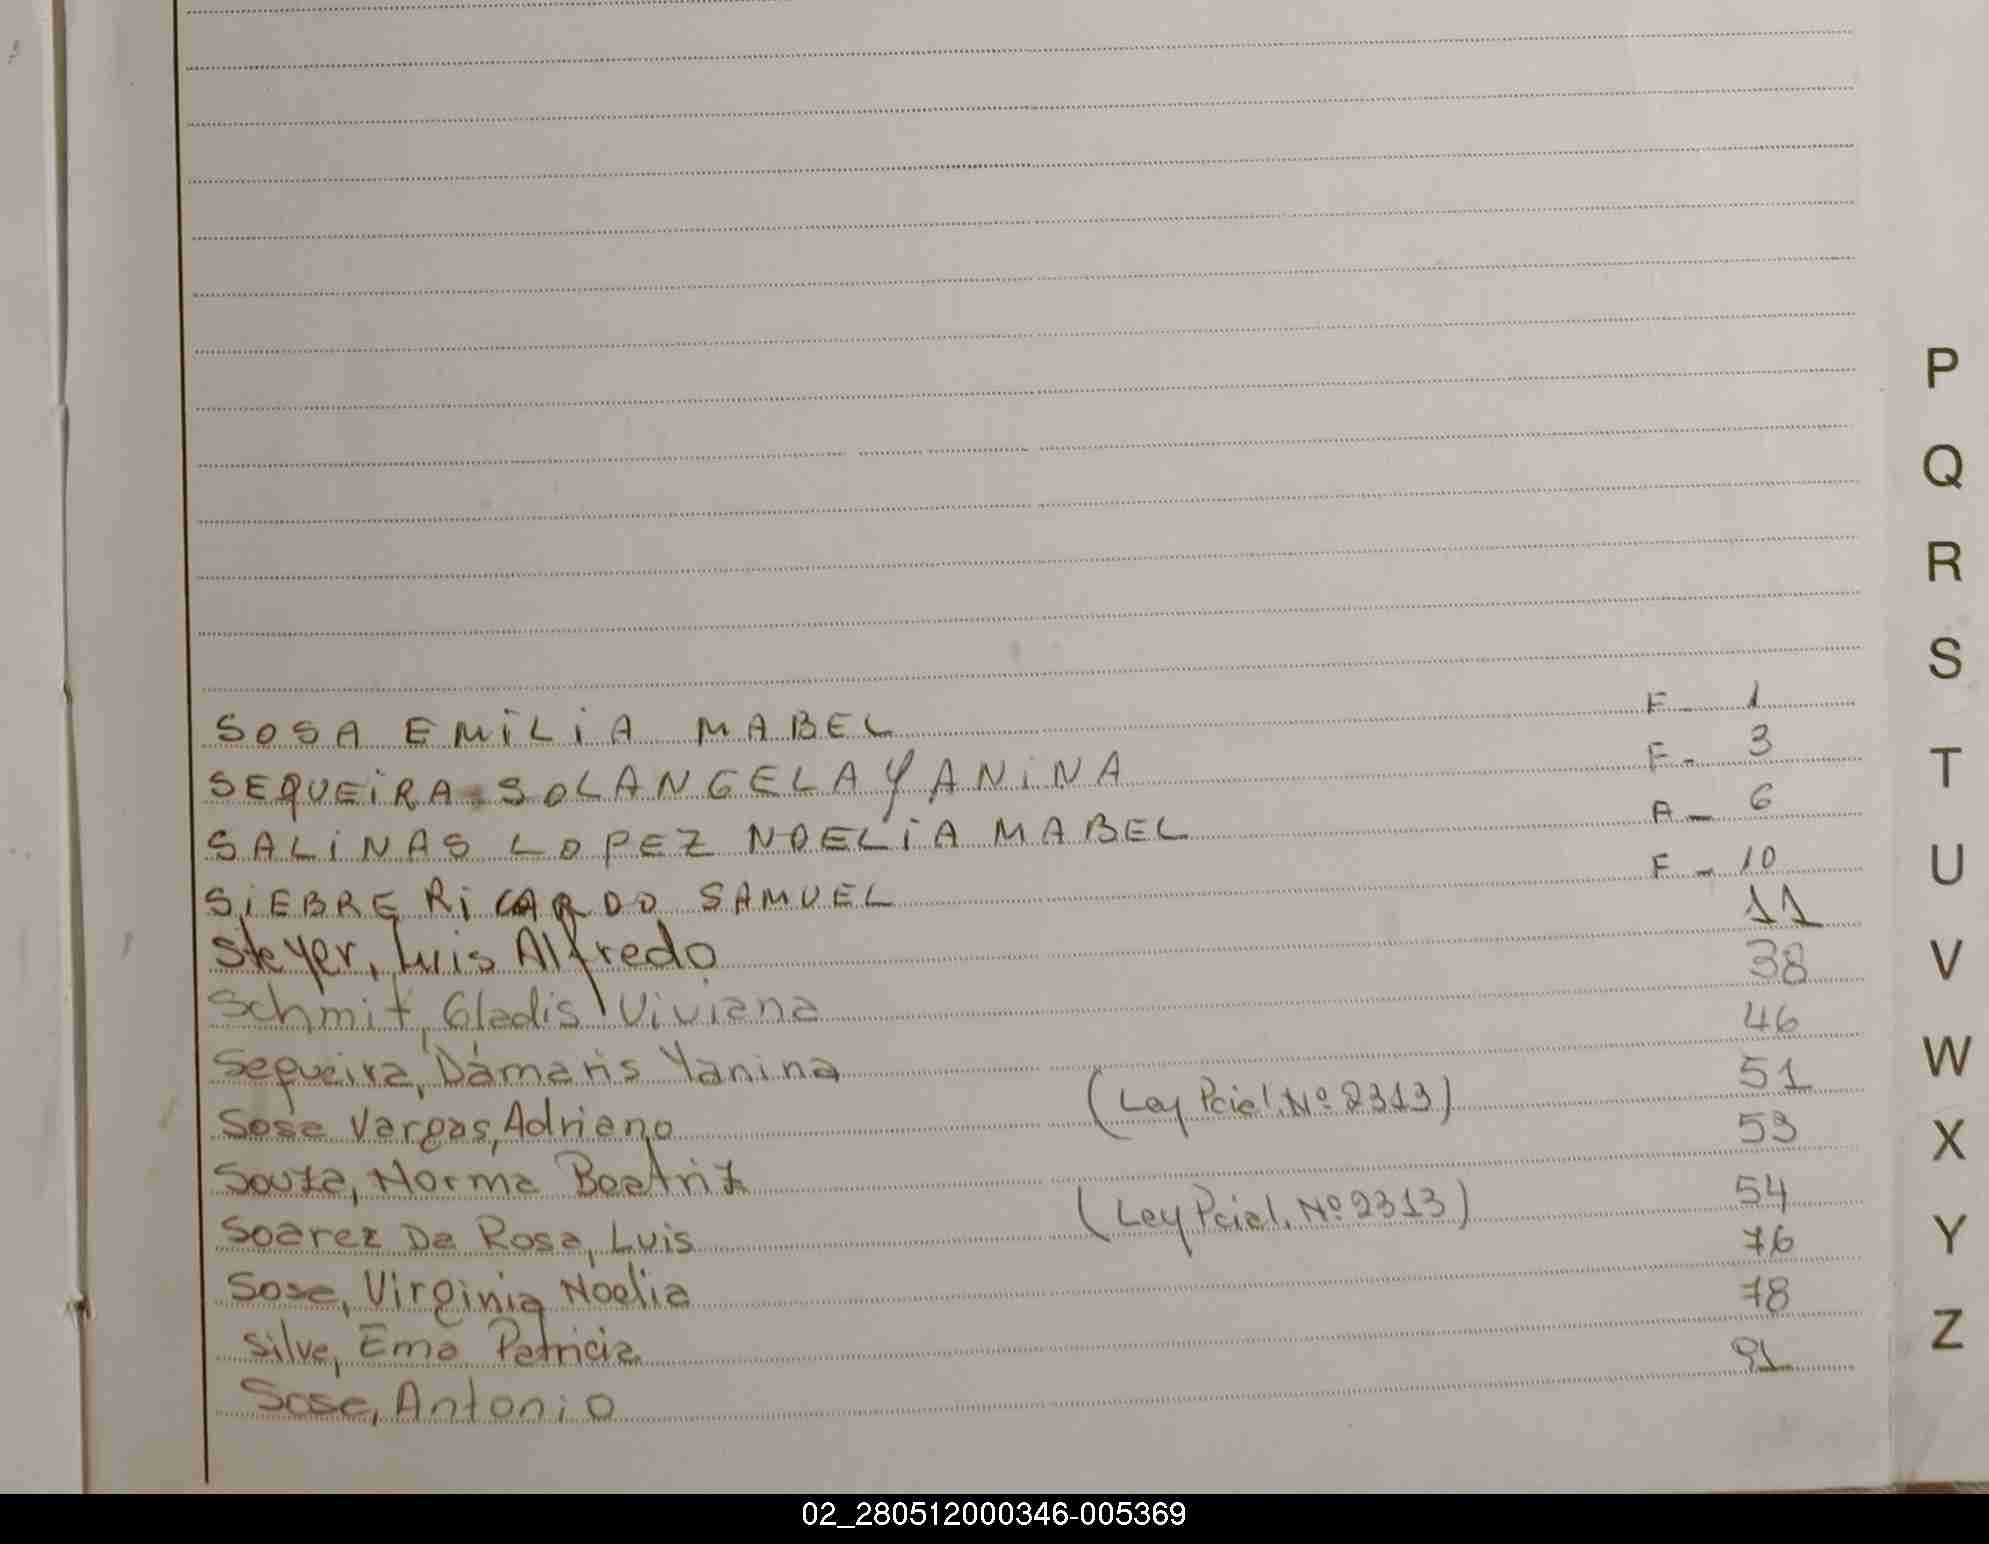 SOSA EMILIA MABEL F- 1
SEQUEIRA SOLANGELA YANINA F- 3
SALINAS LOPEZ NOELIA MABEL A- 6
SIEBRE RICARDO SAMUEL F- 10
Steyer, Luis Alfredo 11
Schmit, Gladis Viviana 38
Sequeira, Dámaris Yanina 46
Sosa Vargas, Adriano (Ley Pcial. Nº 2313) 51
Souza, Norma Beatriz 53
Soarez Da Rosa, Luis (Ley Pcial. Nº 2313) 54
Sosa, Virginia Noelia 76
Silva, Ema Patricia 78
Sosa, Antonio 91
P
Q
R
S
T
U
V
W
X
Y
Z
02_280512000346-005369